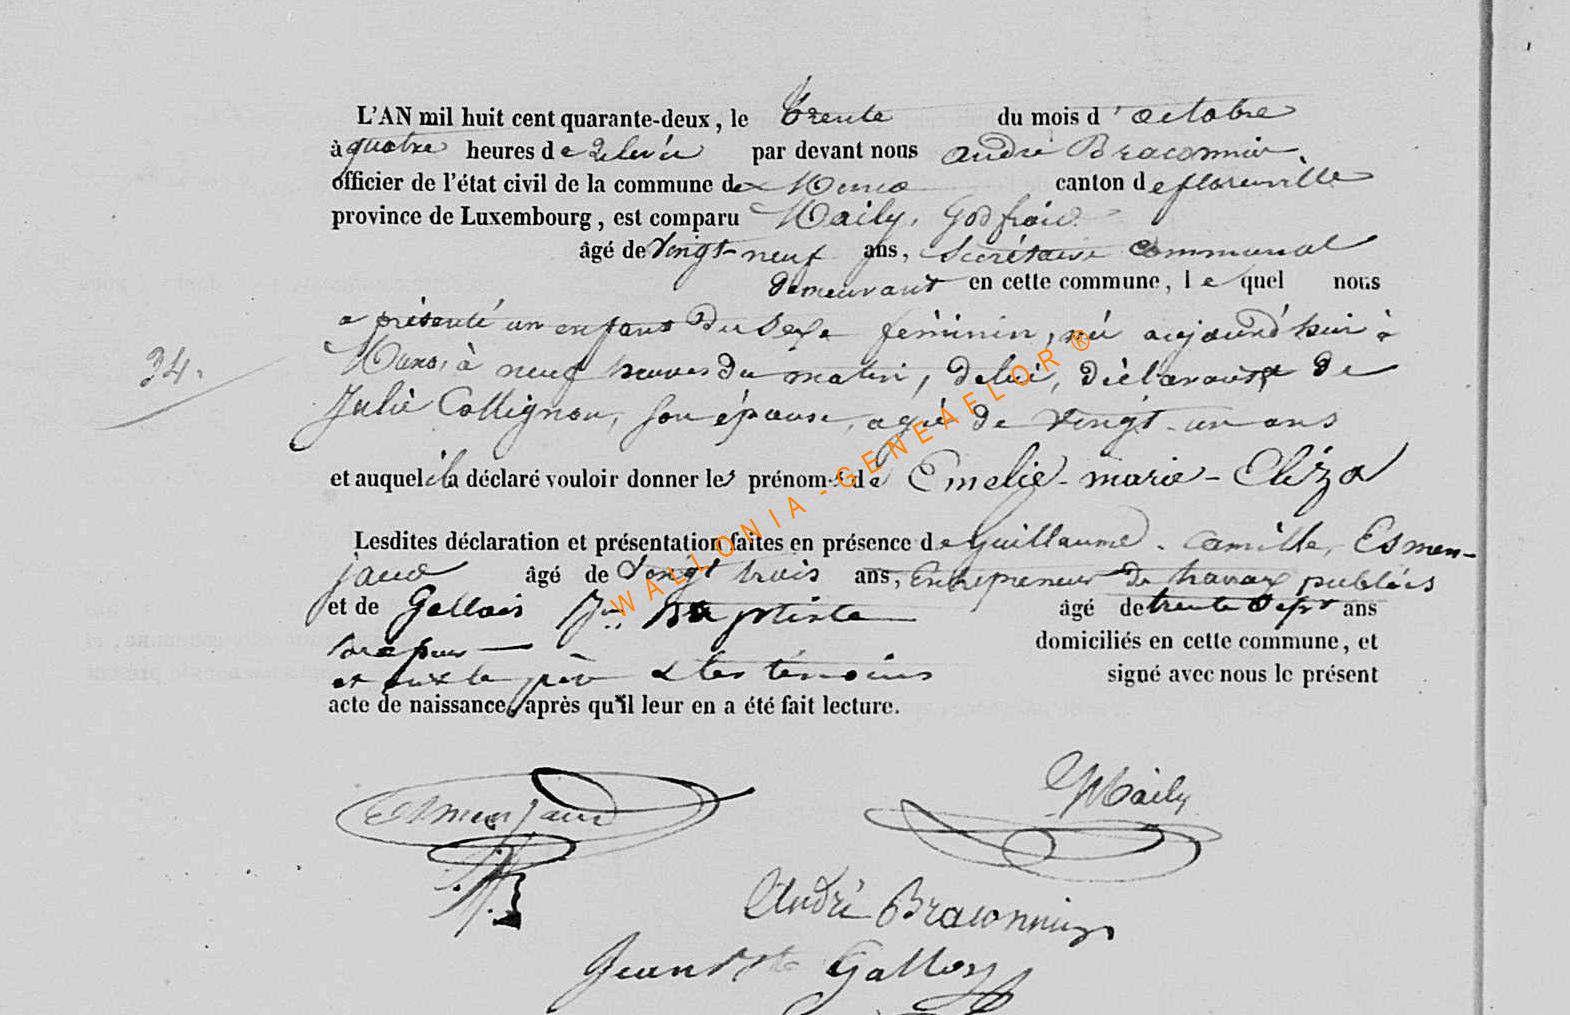 L'AN mil huit cent quarante-deux, le trente du mois d'octobre
à quatre heures de relevée par devant nous André Braconnier,
officier de l'état civil de la commune de Muno canton de florenville
province de Luxembourg, est comparu Maily, Godfroid
âgé de vingt-neuf ans, Secrétaire communal
demeurant en cette commune, lequel nous
a présenté un enfant du sexe féminin, née aujourd'hui à
34.
Muno, à neuf heures du matin, de lui, déclarant et de
Julie Collignon, son épouse, agée de vingt-un ans
et auquel il a déclaré vouloir donner les prénoms de Emelie-marie-Eliza
Lesdites déclaration et présentation faites en présence de Guillaume, Camille, Esmen-
jaud âgé de vingt trois ans, Entrepreneur de travaux publics
et de Gallois Jn Baptiste âgé de trente Sept ans
domiciliés en cette commune, et
et ont le père & les témoins signé avec nous le présent
acte de naissance, après qu'il leur en a été fait lecture.
WALLONIA-GENEAFLOR ®
Esmenjaud GMaily
André Braconnier
Jean Bte Galloy